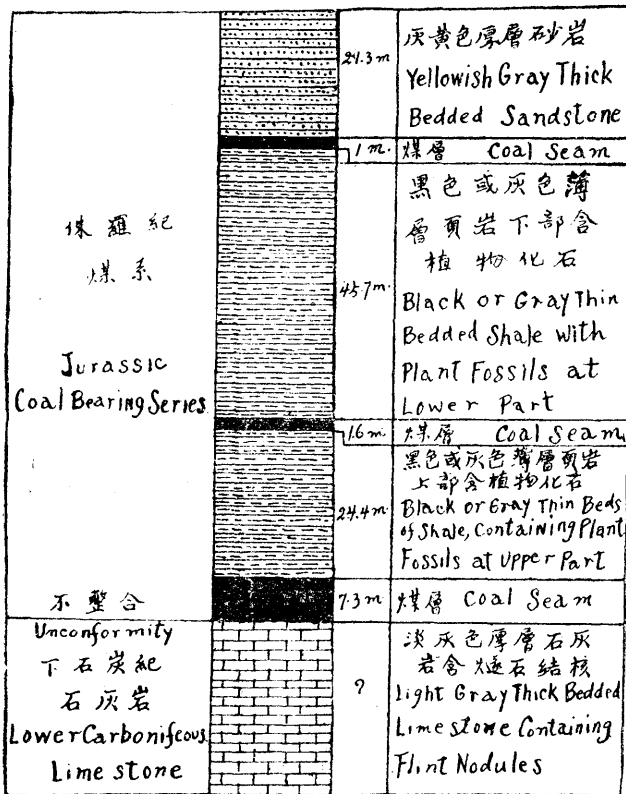 侏羅紀
煤系
Jurassic
Coal Bearing Series
不整合
Unconformity
下石炭紀
石灰岩
Lower Carbonifeous
Lime stone
24.3 m
灰黄色厚層砂岩
Yellowish Gray Thick
Bedded Sandstone
1 m.
煤層 Coal Seam
45.7 m.
黑色或灰色薄
層頁岩下部含
植物化石
Black or Gray Thin
Bedded Shale With
Plant Fossils at
Lower Part
1.6 m.
煤層 Coal Seam
24.4 m
黑色或灰色薄層頁岩
上部含植物化石
Black or Gray Thin Beds
of Shale, Containing Plant
Fossils at Upper Part
7.3 m
煤層 Coal Seam
?
淡灰色厚層石灰
岩含燧石结核
Light Gray Thick Bedded
Lime stone Containing
Flint Nodules